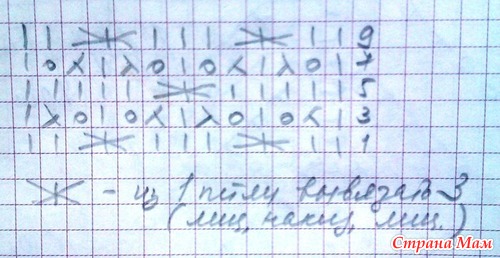 | | ж | | | ж | | 9
| o λ | λ o | o λ | λ o | 7
| | | | | ж | | | | | 5
| λ o | o λ | λ o | o λ | 3
| | ж | | | ж | | 1
ж - из 1 петли вывязать 3
(лиц, накид, лиц.)
Страна Мам